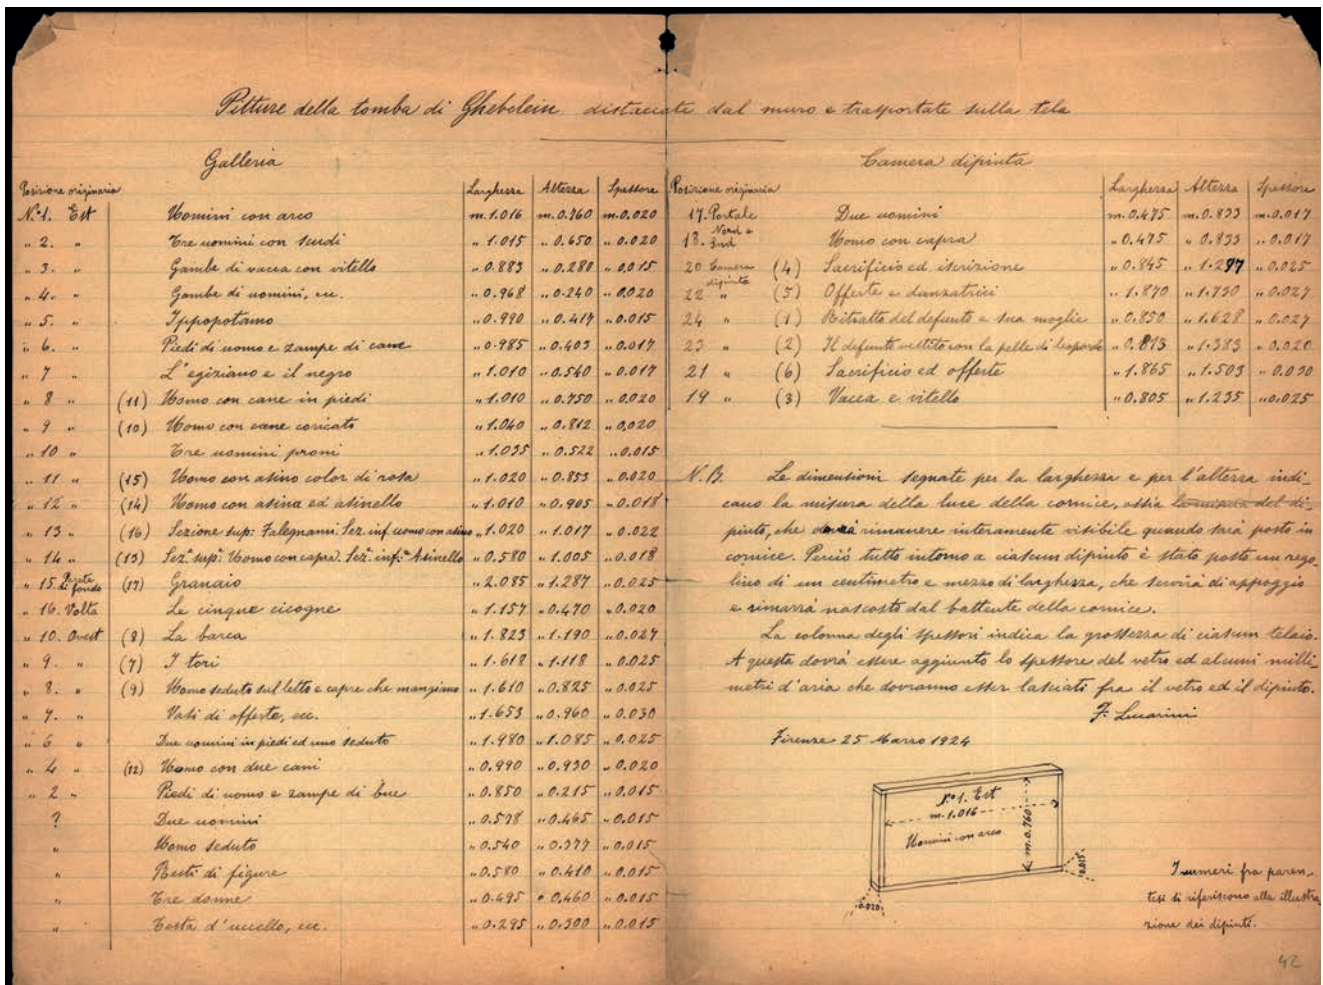 Pitture della tomba di Ghebelein distaccate dal muro e trasportate sulla tela
Galleria
Posizione originaria Larghezza Altezza Spessore
N.º 1. Est Uomini con arco m. 1.016 m. 0.760 m. 0.020
" 2. " Tre uomini con scudi " 1.015 " 0.650 " 0.020
" 3. " Gambe di vacca con vitello " 0.883 " 0.280 " 0.015
" 4. " Gambe di uomini, ecc. " 0.968 " 0.240 " 0.020
" 5. " Ippopotamo " 0.990 " 0.417 " 0.015
" 6. " Piedi di uomo e zampe di cane " 0.985 " 0.403 " 0.017
" 7 " L'egiziano e il negro " 1.010 " 0.540 " 0.017
" 8 " (11) Uomo con cane in piedi " 1.010 " 0.750 " 0.020
" 9 " (10) Uomo con cane coricato " 1.040 " 0.812 " 0.020
" 10 " Tre uomini proni " 1.035 " 0.522 " 0.015
" 11 " (15) Uomo con asino color di rosa " 1.020 " 0.853 " 0.020
" 12 " (14) Uomo con asina ed asinello " 1.010 " 0.905 " 0.018
" 13 " (16) Sezione sup: Falegnami. Sez. inf. uomo con asino " 1.020 " 1.017 " 0.022
" 14 " (13) Sezº. supº: Uomo con capra. Sezº. inf:º Asinello " 0.580 " 1.005 " 0.018
" 15. Parete di fondo (17) Granaio " 2.085 " 1.287 " 0.025
" 16. Volta Le cinque cicogne " 1.157 " 0.470 " 0.020
" 10. Ovest (8) La barca " 1.823 " 1.190 " 0.027
" 9. " (7) I tori " 1.618 " 1.118 " 0.025
" 8. " (9) Uomo seduto sul letto e capre che mangiano " 1.610 " 0.825 " 0.025
" 7. " Vasi di offerte, ecc. " 1.653 " 0.960 " 0.030
" 6 " Due uomini in piedi ed uno seduto " 1.980 " 1.085 " 0.025
" 4 " (12) Uomo con due cani " 0.990 " 0.930 " 0.020
" 2 " Piedi di uomo e zampe di bue " 0.850 " 0.215 " 0.015
? Due uomini " 0.578 " 0.465 " 0.015
" Uomo seduto " 0.540 " 0.377 " 0.015
" Resti di figure " 0.580 " 0.410 " 0.015
" Tre donne " 0.495 " 0.460 " 0.015
" Testa d'uccello, ecc. " 0.295 " 0.300 " 0.015
Camera dipinta
Posizione originaria Larghezza Altezza Spessore
17. Portale Due uomini m. 0.475 m. 0.833 m. 0.017
18. Nord e Sud Uomo con capra " 0.475 " 0.833 " 0.017
20 Camera dipinta (4) Sacrificio ed iscrizione " 0.845 " 1.297 " 0.025
22 " (5) Offerte e danzatrici " 1.870 " 1.730 " 0.027
24 " (1) Ritratto del defunto e sua moglie " 0.850 " 1.628 " 0.027
23 " (2) Il defunto vestito con la pelle di leopardo " 0.893 " 1.383 " 0.020
21 " (6) Sacrificio ed offerte " 1.865 " 1.503 " 0.030
19 " (3) Vacca e vitello " 0.805 " 1.235 " 0.025
N.B. Le dimensioni segnate per la larghezza e per l'altezza indi_
cano la misura della luce della cornice, ossia la misura del di_
pinto, che dovrà rimanere interamente visibile quando sarà posto in
cornice. Perciò tutto intorno a ciascun dipinto è stato posto un rego_
lino di un centimetro e mezzo di larghezza, che servirà di appoggio
e rimarrà nascosto dal battente della cornice.
La colonna degli spessori indica la grossezza di ciascun telaio.
A questa dovrà essere aggiunto lo spessore del vetro ed alcuni milli_
metri d'aria che dovranno esser lasciati fra il vetro ed il dipinto.
F. Lucarini
Firenze 25 Marzo 1924
N.º 1. Est
m. 1.016
Uomini con arco
m. 0.760
0.015
0.020
I numeri fra paren_
tesi si riferiscono alla illustra_
zione dei dipinti.
42